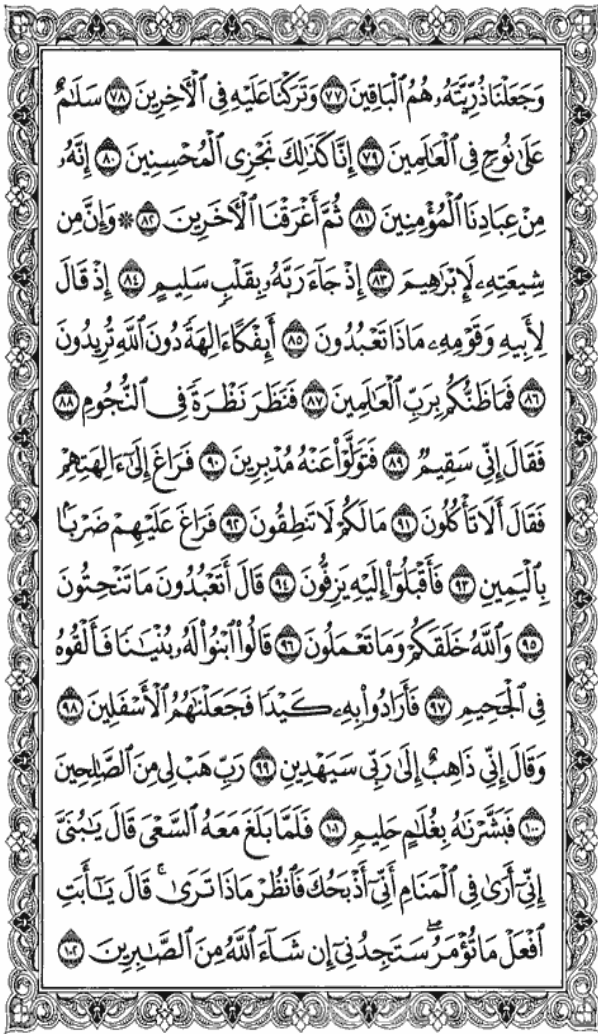 وَجَعَلْنَا ذُرِّيَّتَهُۥ هُمُ ٱلْبَاقِينَ ٧٧ وَتَرَكْنَا عَلَيْهِ فِى ٱلْأَخِرِينَ ٧٨ سَلَٰمٌ
عَلَىٰ نُوحٍ فِى ٱلْعَٰلَمِينَ ٧٩ إِنَّا كَذَٰلِكَ نَجْزِى ٱلْمُحْسِنِينَ ٨٠ إِنَّهُۥ
مِنْ عِبَادِنَا ٱلْمُؤْمِنِينَ ٨١ ثُمَّ أَغْرَقْنَا ٱلْأَخَرِينَ ٨٢ * وَإِنَّ مِن
شِيعَتِهِۦ لَإِبْرَٰهِيمَ ٨٣ إِذْ جَآءَ رَبَّهُۥ بِقَلْبٍ سَلِيمٍ ٨٤ إِذْ قَالَ
لِأَبِيهِ وَقَوْمِهِۦ مَاذَا تَعْبُدُونَ ٨٥ أَئِفْكًا ءَالِهَةً دُونَ ٱللَّهِ تُرِيدُونَ
٨٦ فَمَا ظَنُّكُم بِرَبِّ ٱلْعَٰلَمِينَ ٨٧ فَنَظَرَ نَظْرَةً فِى ٱلنُّجُومِ ٨٨
فَقَالَ إِنِّى سَقِيمٌ ٨٩ فَتَوَلَّوْا۟ عَنْهُ مُدْبِرِينَ ٩٠ فَرَاغَ إِلَىٰٓ ءَالِهَتِهِمْ
فَقَالَ أَلَا تَأْكُلُونَ ٩١ مَا لَكُمْ لَا تَنطِقُونَ ٩٢ فَرَاغَ عَلَيْهِمْ ضَرْبًۢا
بِٱلْيَمِينِ ٩٣ فَأَقْبَلُوٓا۟ إِلَيْهِ يَزِفُّونَ ٩٤ قَالَ أَتَعْبُدُونَ مَا تَنْحِتُونَ
٩٥ وَٱللَّهُ خَلَقَكُمْ وَمَا تَعْمَلُونَ ٩٦ قَالُوا۟ ٱبْنُوا۟ لَهُۥ بُنْيَٰنًا فَأَلْقُوهُ
فِى ٱلْجَحِيمِ ٩٧ فَأَرَادُوا۟ بِهِۦ كَيْدًا فَجَعَلْنَٰهُمُ ٱلْأَسْفَلِينَ ٩٨
وَقَالَ إِنِّى ذَاهِبٌ إِلَىٰ رَبِّى سَيَهْدِينِ ٩٩ رَبِّ هَبْ لِى مِنَ ٱلصَّٰلِحِينَ
١٠٠ فَبَشَّرْنَٰهُ بِغُلَٰمٍ حَلِيمٍ ١٠١ فَلَمَّا بَلَغَ مَعَهُ ٱلسَّعْىَ قَالَ يَٰبُنَىَّ
إِنِّىٓ أَرَىٰ فِى ٱلْمَنَامِ أَنِّىٓ أَذْبَحُكَ فَٱنظُرْ مَاذَا تَرَىٰ ۚ قَالَ يَٰٓأَبَتِ
ٱفْعَلْ مَا تُؤْمَرُ ۖ سَتَجِدُنِىٓ إِن شَآءَ ٱللَّهُ مِنَ ٱلصَّٰبِرِينَ ١٠٢